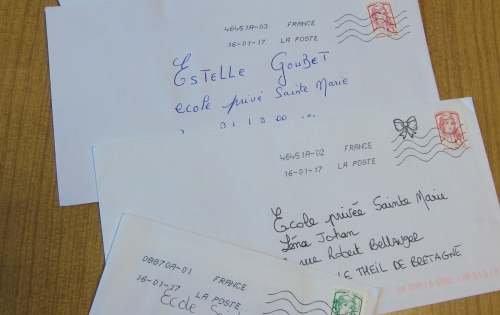 46451A-03 FRANCE
16-01-17 LA POSTE
Estelle Goubet
école privé Sainte Marie
46451A-02 FRANCE
16-01-17 LA POSTE
École privée Sainte Marie
Léna Johan
rue Robert Bellanger
LE THEIL DE BRETAGNE
08870A-01 FRANCE
16-01-17 LA POSTE
École